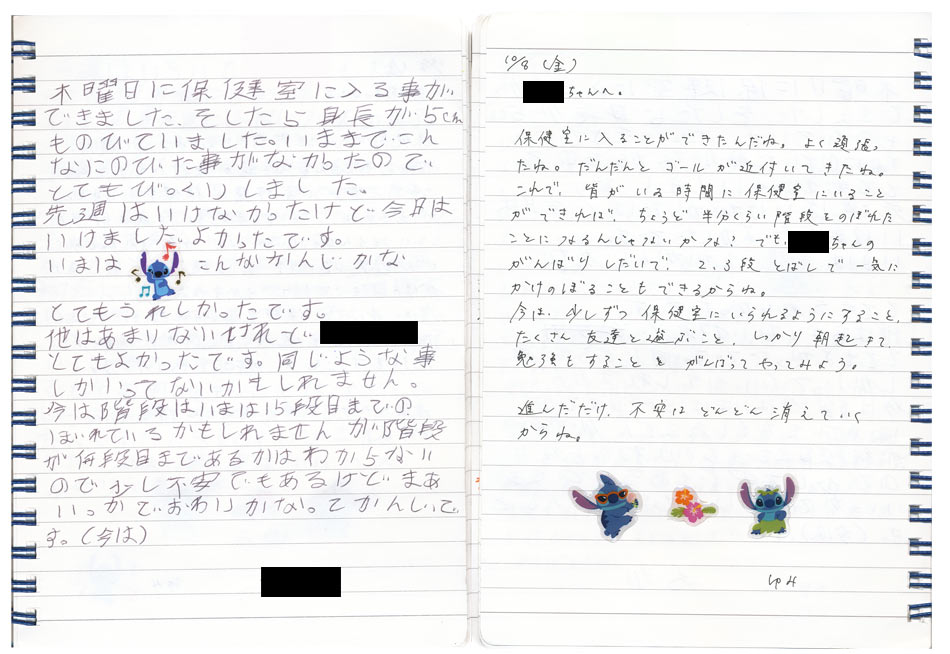 木曜日に保健室に入る事が
できました。そしたら身長が5cm
ものびていました。いままでこん
なにのびた事がなかったので
とてもびっくりしました。
先週はいけなかったけど今日は
いけました。よかったです。
いまは こんなかんじかな
とてもうれしかったです。
他はあまりないけれど
とてもよかったです。同じような事
しかいってないかもしれません。
今は階段はいまは15段目までの
ぼれているかもしれませんが階段
が何段目まであるかはわからない
ので少し不安でもあるけどまあ
いっかでおわりかな。てかんしいで
す。(今は)
10/8 (金)
ちゃんへ。
保健室に入ることができたんだね。よく頑張っ
たね。だんだんと ゴールが近付いてきたね。
これで、皆がいる時間に保健室にいること
ができれば、ちょうど半分くらい階段をのぼれた
ことになるんじゃないかな? でも、 ちゃんの
がんばりしだいで、2、3段とばしで一気に
かけのぼることもできるからね。
今は、少しずつ保健室にいられるようにすること、
たくさん友達と遊ぶこと、しっかり朝起きて、
勉強もすることをがんばってやってみよう。
進んだだけ、不安はどんどん消えていく
からね。
ゆみ